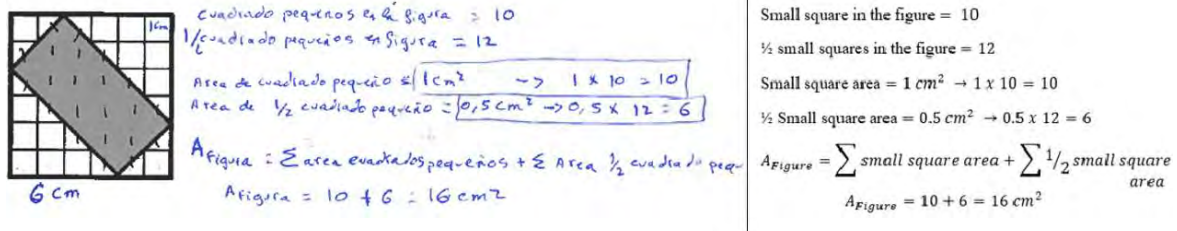 1cm
6 cm
cuadrado pequeños en la figura = 10
1/2 cuadrado pequeños en figura = 12
Area de cuadrado pequeño = 1cm² -> 1 x 10 = 10
Area de 1/2 cuadrado pequeño = 0,5cm² -> 0,5 x 12 = 6
A Figura = Σ area cuadrados pequeños + Σ Area 1/2 cuadrado peque
A Figura = 10 + 6 = 16 cm2
Small square in the figure = 10
½ small squares in the figure = 12
Small square area = 1 cm² → 1 x 10 = 10
½ Small square area = 0.5 cm² → 0.5 x 12 = 6
A_Figure = ∑ small square area + ∑ 1/2 small square
area
A_Figure = 10 + 6 = 16 cm²